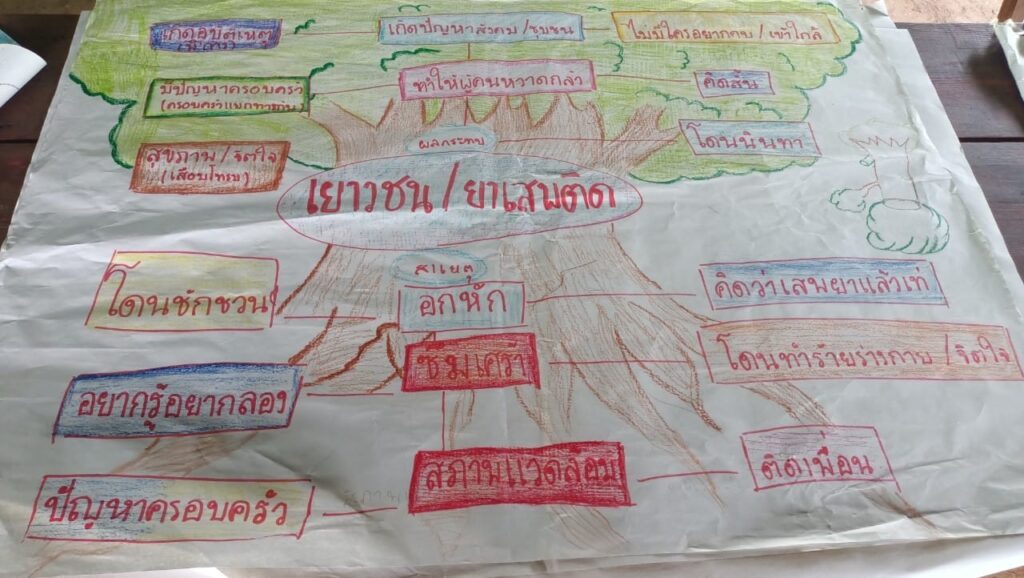 เกิดอุบัติเหตุ
เกิดปัญหาสังคม/ชุมชน
ไม่มีใครอยากคบ/เข้าใกล้
มีปัญหาครอบครัว
(ครอบครัวแตกแยกกัน)
ทำให้ผู้คนหวาดกลัว
คิดสั้น
ผลกระทบ
โดนนินทา
สุขภาพ/จิตใจ
(เสื่อมโทรม)
เยาวชน/ยาเสพติด
สาเหตุ
โดนชักชวน
อกหัก
คิดว่าเสพยาแล้วเท่
ซึมเศร้า
โดนทำร้ายร่างกาย/จิตใจ
อยากรู้อยากลอง
สภาพแวดล้อม
ติดเพื่อน
ปัญหาครอบครัว